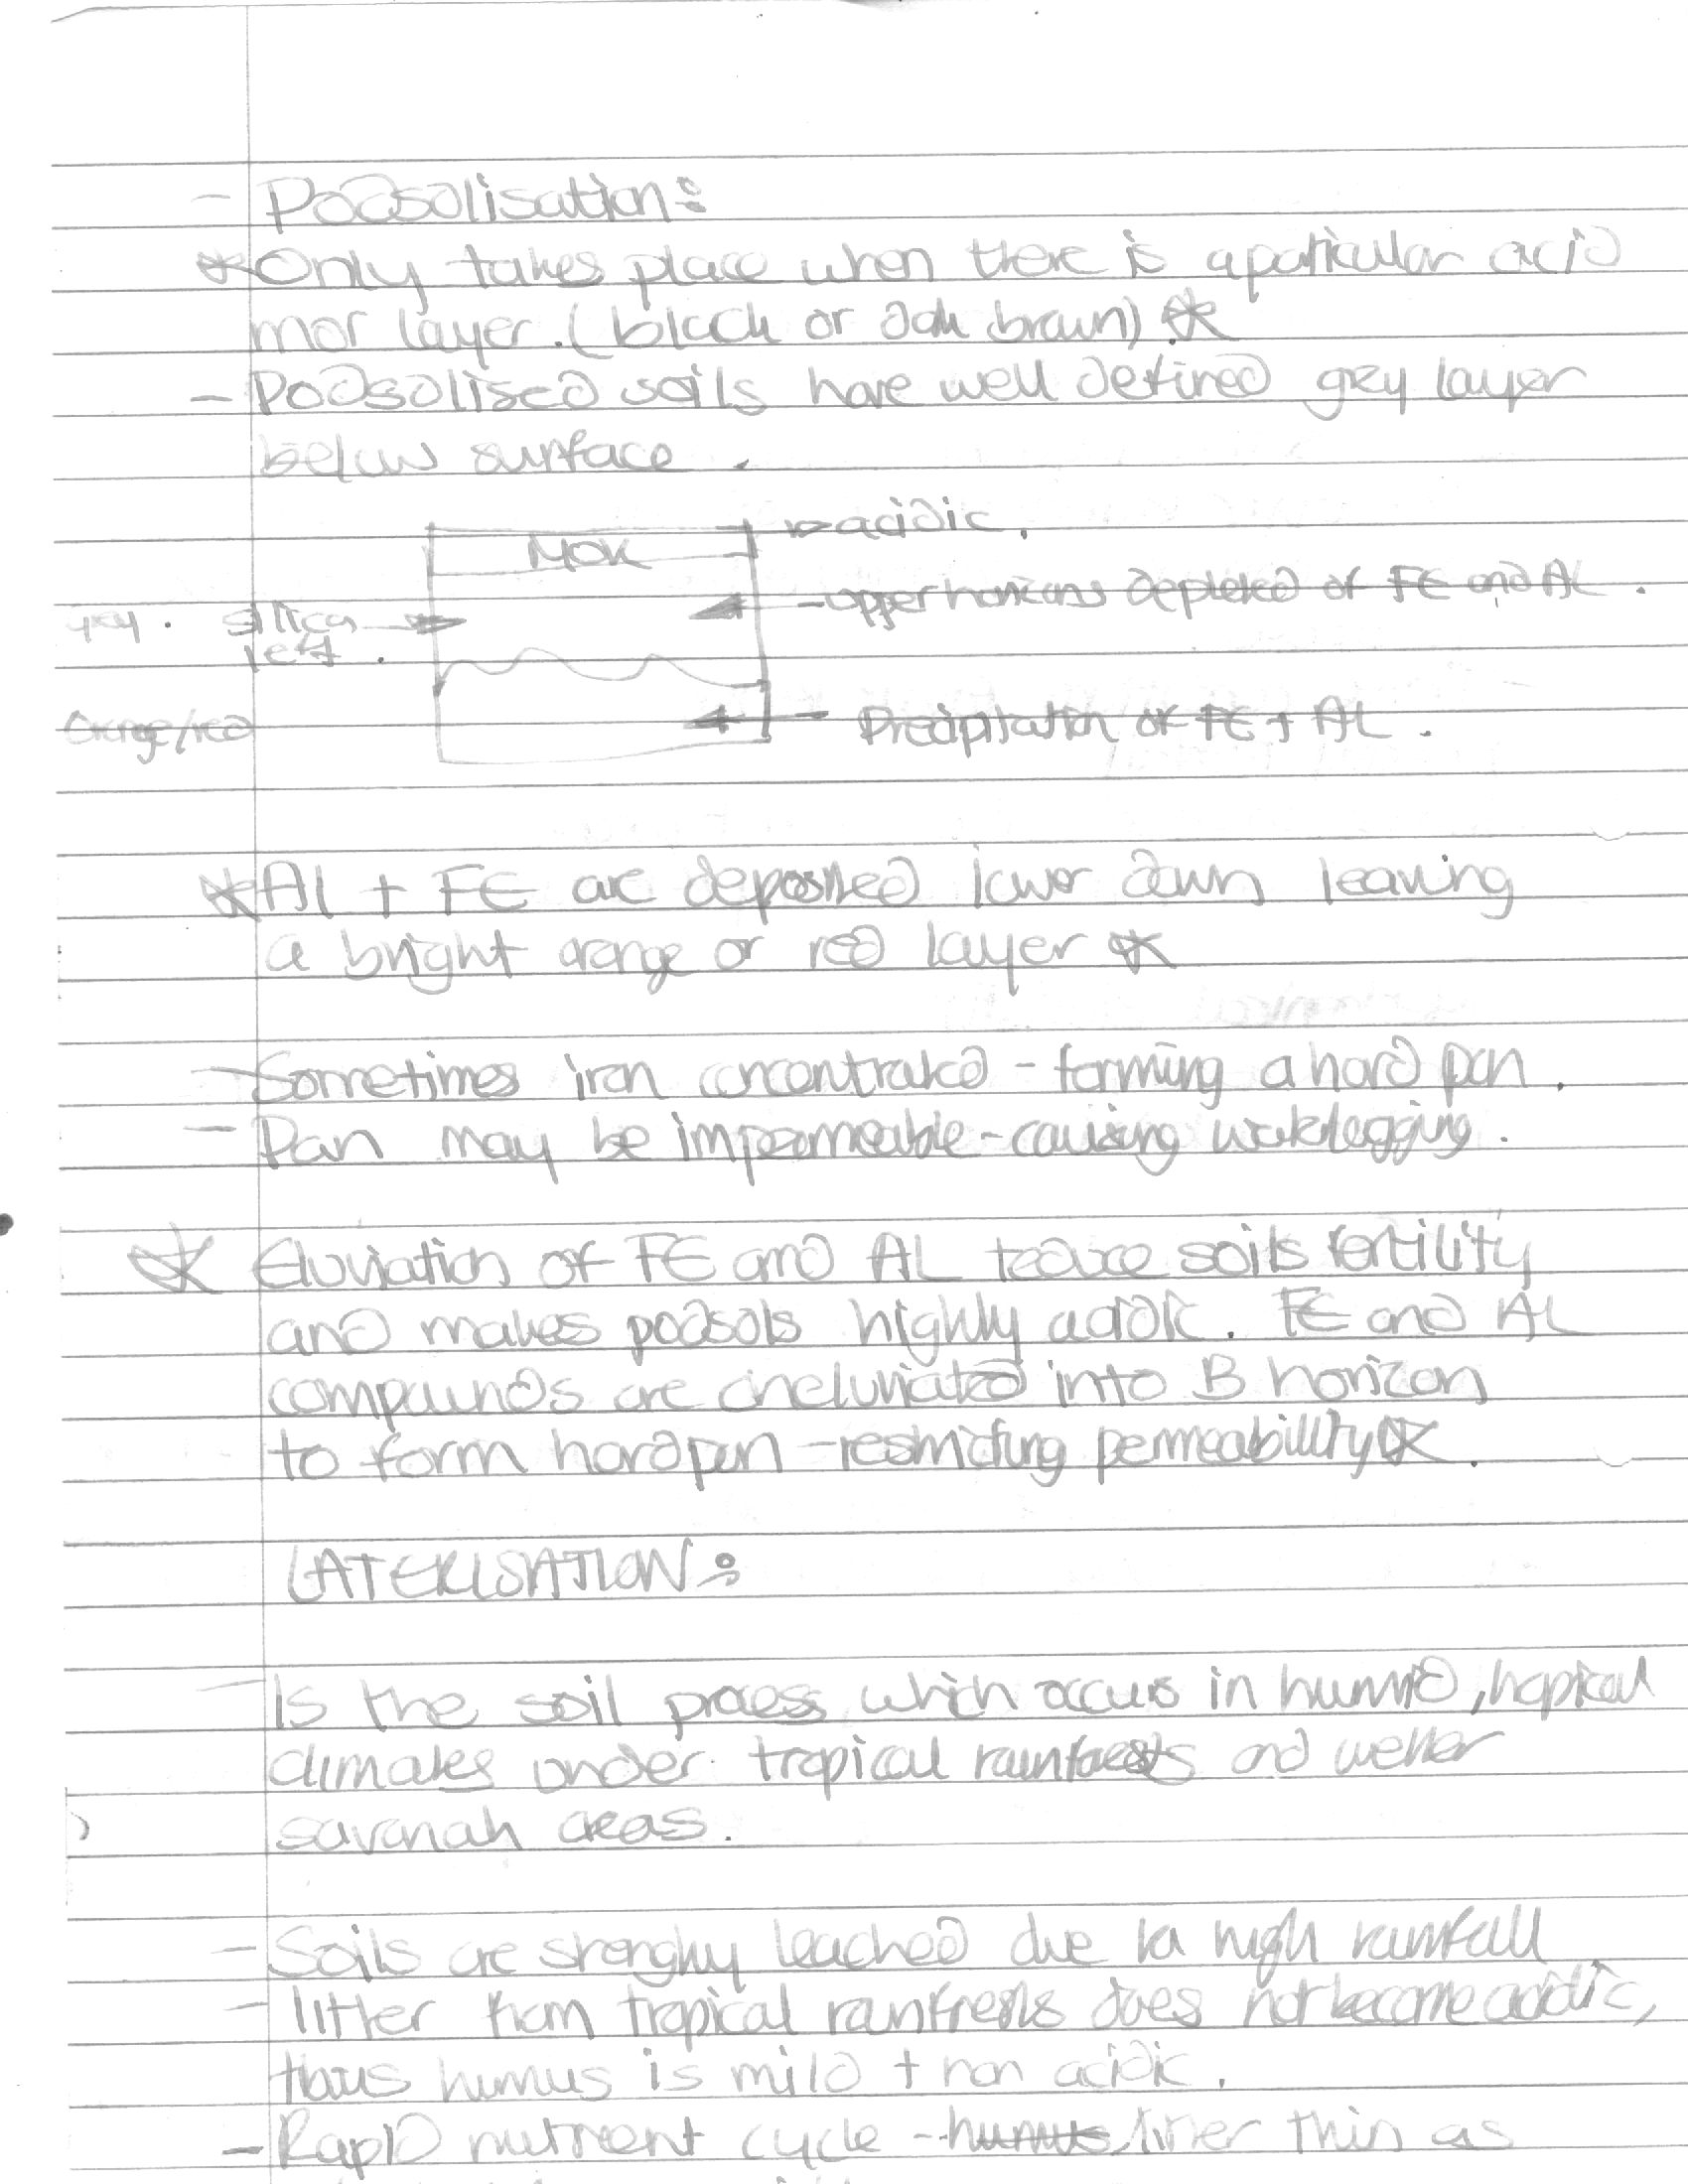 - Podsolisation:
* Only takes place when there is a paticular acid
mor layer. (black or dark brown) *
- Podsolised soils have well defined grey layer
below surface.
→ acidic.
MOR
- upper horizons depleted of FE and AL.
grey. silica
left.
Orange/red
Precipitation of FE + AL.
* Al + FE are deposited lower down leaving
a bright orange or red layer *
- Sometimes iron concentrated - forming a hard pan.
- Pan may be impermeable - causing waterlogging.
* Eluviation of FE and AL reduce soils fertility
and makes podsols highly acidic. FE and AL
compounds are into B horizon
to form hardpan - restricting permeability *.
LATERISATION:
- Is the soil process which occurs in humid, tropical
climates under tropical rainforests and wetter
savanah areas.
- Soils are strongly leached due to high rainfall
- litter from tropical rainfrests does not become acidic,
thus humus is mild + non acidic.
- Rapid nutrient cycle - humus litter thin as